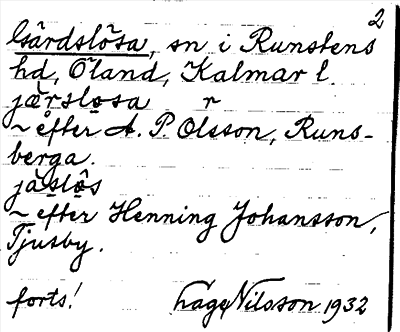 2
Gärdslösa, sn i Runstens
hd, Öland, Kalmar l.
järslosa r
~ efter A. P. Olsson, Runs-
berga.
jäslös
~ efter Henning Johansson,
Tjusby.
forts! Lage Nilsson 1932